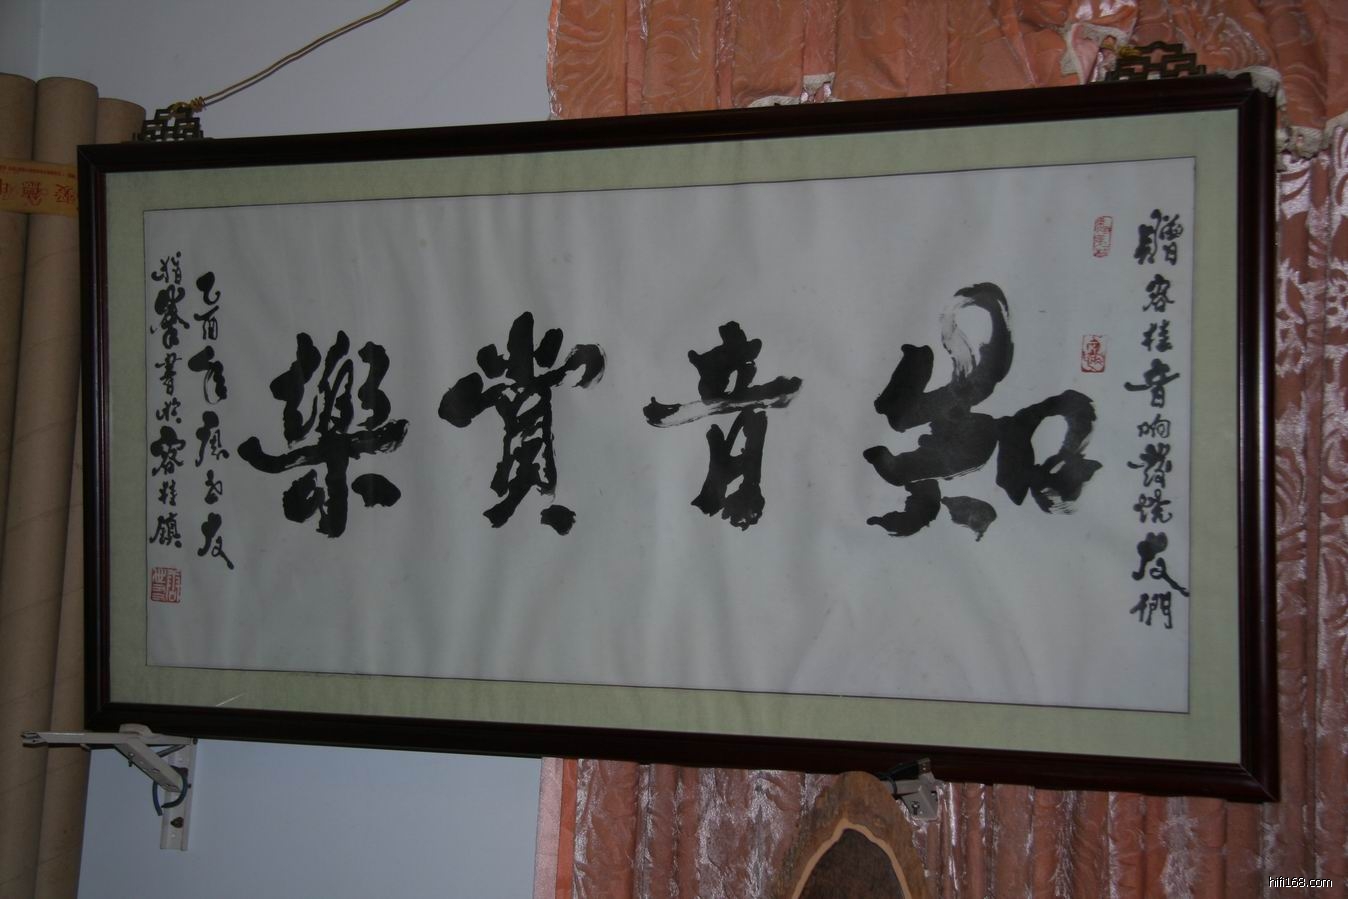 贈容桂音响發燒友們
知音賞樂
乙酉年
書於容桂鎮
hifi168.com